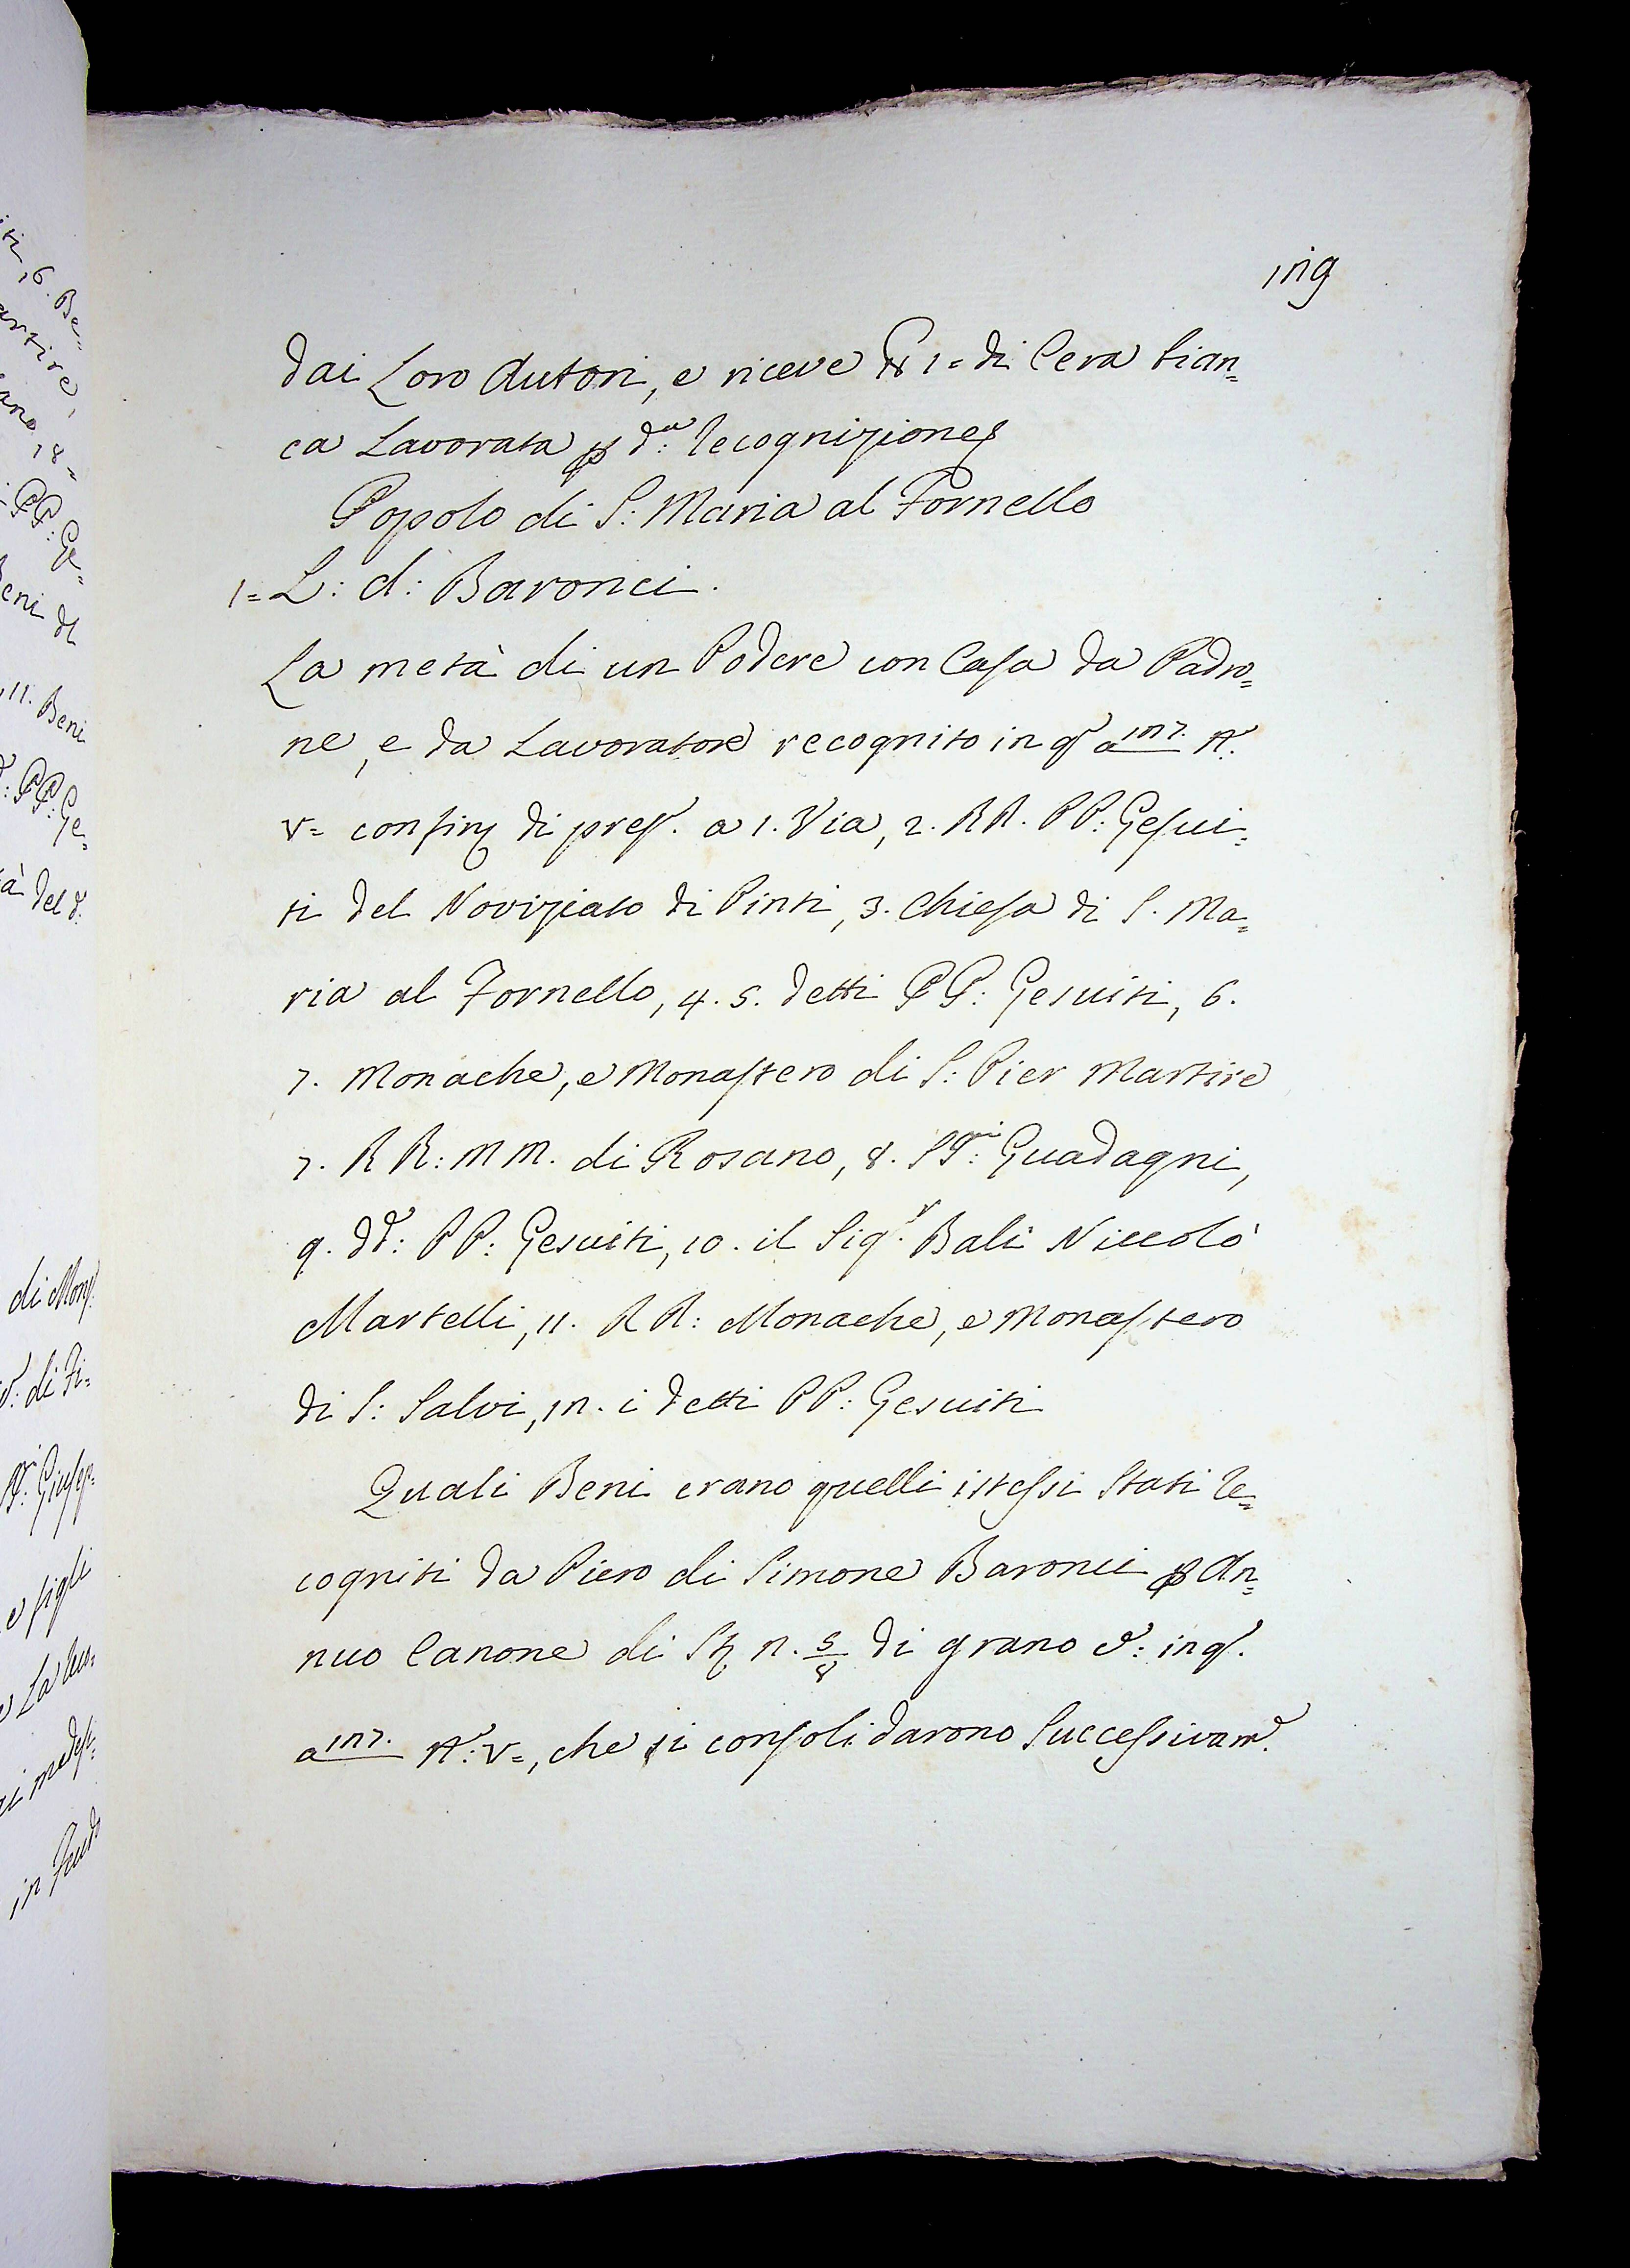 129
dai Loro Autori, e riceve ℔ 1= di Cera bian=
ca Lavorata p d.ᵃ recognizione
Popolo di S: Maria al Fornello
1= L: d: Baronci.
La metà di un Podere con Casa da Padro=
ne, e da Lavoratore recognito in qᵒ a 127. Nᵒ.
V= confin di pres. a 1. Via, 2. RR. PP: Gesui=
ti del Noviziato di Pinti, 3. Chiesa di S. Ma=
ria al Fornello, 4. 5. detti PP: Gesuiti, 6.
7. Monache, e Monastero di S: Pier Martire
7. RR: MM. di Rosano, 8. SS.ⁱ: Guadagni,
9. dd: PP: Gesuiti, 10. il Sig.ʳ Balì Niccolò
Martelli, 11. RR: Monache, e Monastero
di S: Salvi, 12. i detti PP: Gesuiti
Quali Beni erano quelli istessi Stati re=
cogniti da Piero di Simone Baronci p An=
nuo Canone di St 2. 5/8 di grano d: in qᵒ.
a 127. Nᵒ: V=, che si consolidarono Successivam.ᵉ
6. Be=
18=
PP: Ge=
Beni d
11. Beni
PP: Ge=
à del d:
di Mons.
di Fi=
Giusep=
e figli
in Feudo